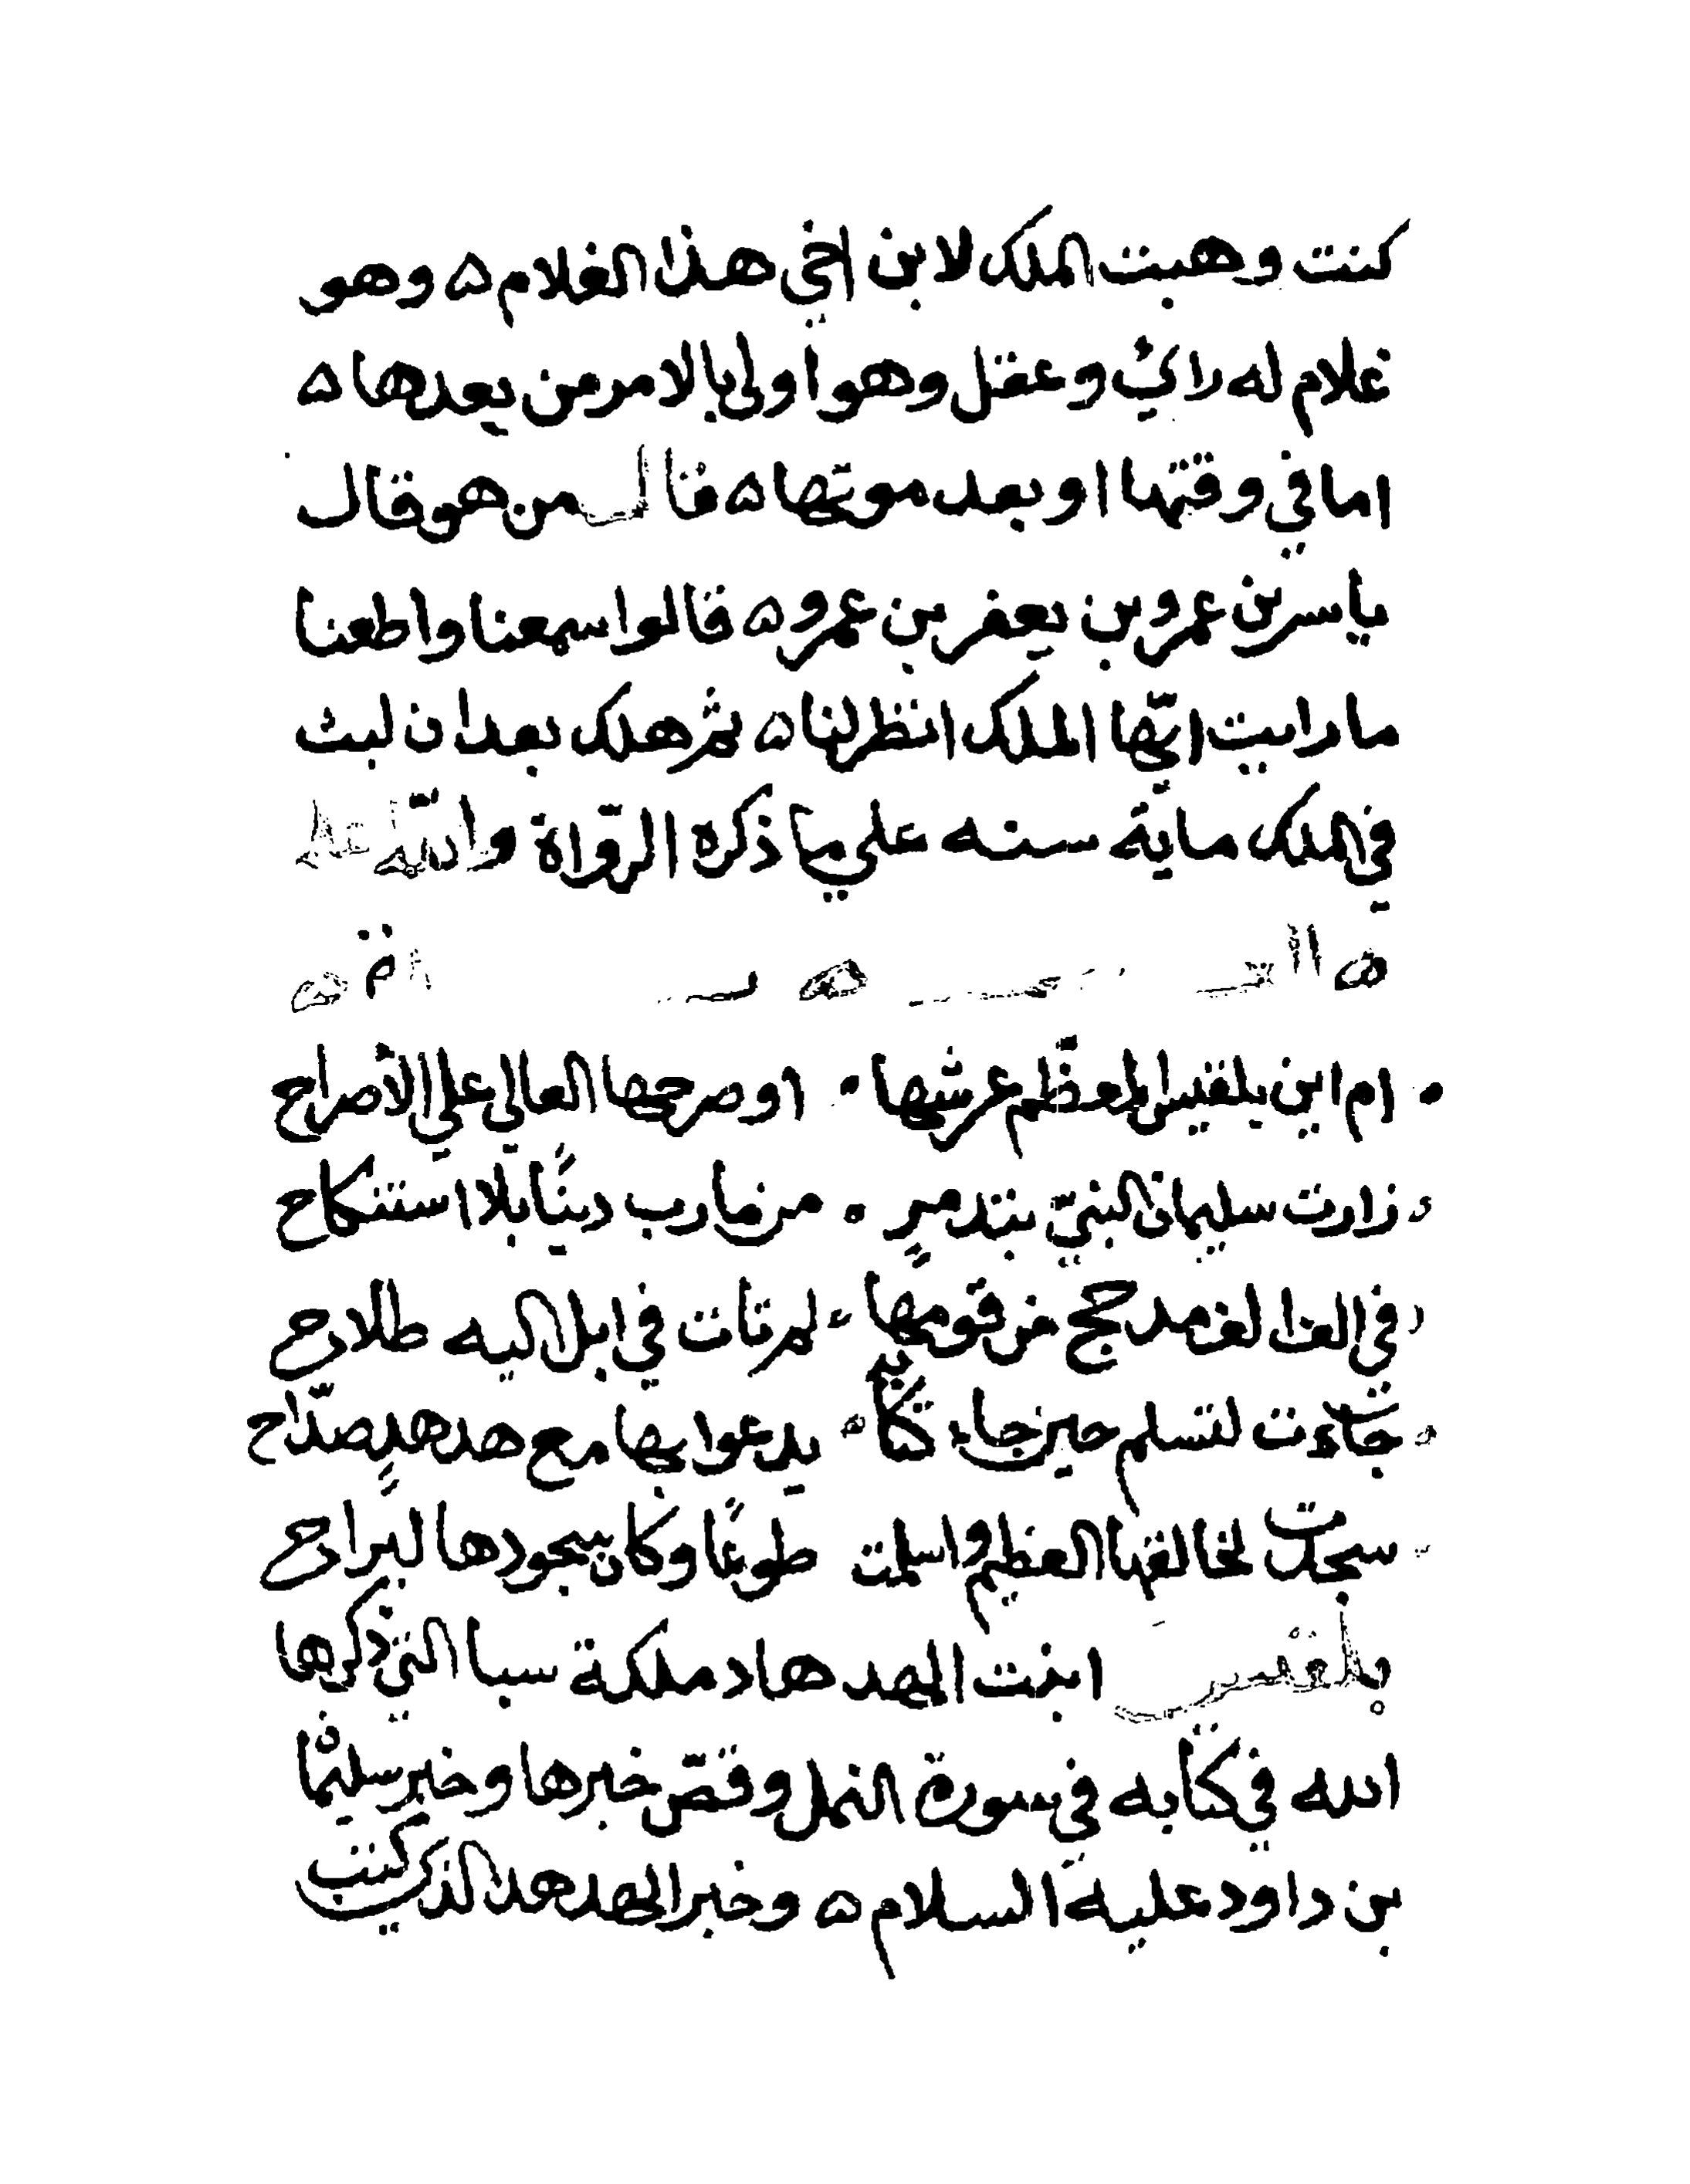 كنت وهبت الملك لابن اخي هذا الغلام ه وهو
غلام له راي وعقل وهو اولي بالامر من بعدها ه
اما في وقتها او بعد موتها ه قال من هو قال
ياسر بن عمرو بن يعفر بن عمرو ه قالوا سمعنا واطعنا
ما رايت ايّها الملك انظر لنا ه ثم هلك بعد ان لبث
في الملك ماية سنه علي ما ذكره الروّاة والله
ام اين بلقيس المعظّم عرشها • او صرحها العالي علي الأصراح
زارت سليمان النبيّ بتدمرٍ • من مارب دينًا بلا استنكاح
في الف الف مدجج من قومها • لم تات في ابل اليه طلاح
جاءت لتسلم حين جاء كتابٌ • يدعوا بها مع هدهدٍ صدّاح
سجدت لخالقها العظيم واسلمت طوعًا وكان سجودها لبراح
بلقيس ابنت الهدهاد ملكة سبا التي ذكرها
الله في كتابه في سورة النمل وقصّ خبرها وخبر سليمان
بن داود عليه السلام ه وخبر الهدهد الذي كتب